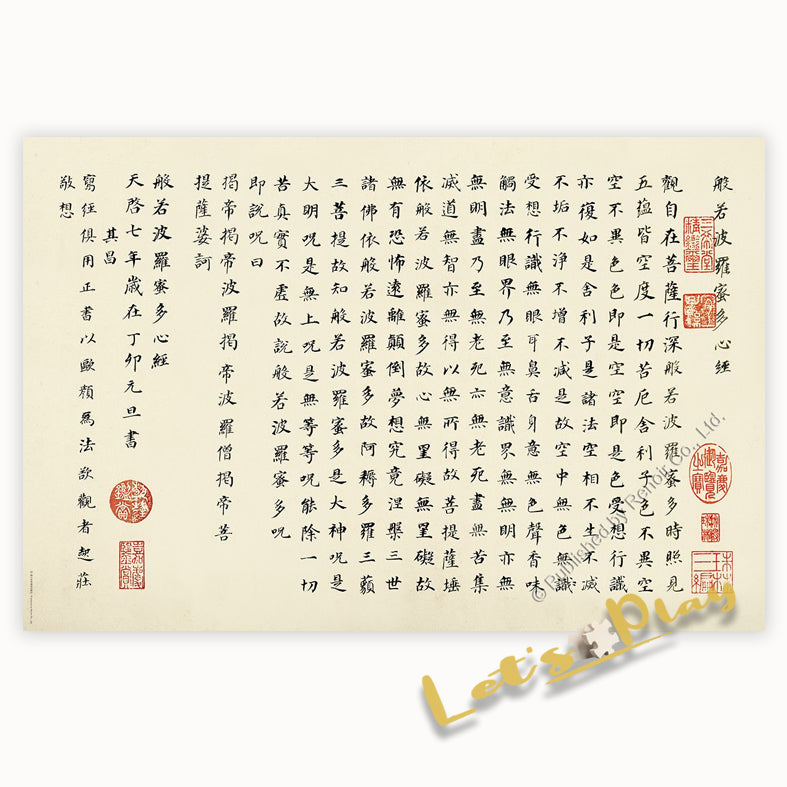 般若波羅蜜多心經
觀自在菩薩行深般若波羅蜜多時照見
五蘊皆空度一切苦厄舍利子色不異空
空不異色色即是空空即是色受想行識
亦復如是舍利子是諸法空相不生不滅
不垢不淨不增不減是故空中無色無識
受想行識無眼耳鼻舌身意無色聲香味
觸法無眼界乃至無意識界無無明亦無
無明盡乃至無老死亦無老死盡無苦集
滅道無智亦無得以無所得故菩提薩埵
依般若波羅蜜多故心無罣礙無罣礙故
無有恐怖遠離顛倒夢想究竟涅槃三世
諸佛依般若波羅蜜多故阿耨多羅三藐
三菩提故知般若波羅蜜多是大神呪是
大明呪是無上呪是無等等呪能除一切
苦真實不虛故說般若波羅蜜多呪
即說呪曰
揭帝揭帝波羅揭帝波羅僧揭帝菩
提薩婆訶
般若波羅蜜多心經
天啓七年歲在丁卯元旦書
其昌
寫經俱用正書以歐顏為法欲觀者起莊
敬想
三希堂精鑑璽
宜子孫
嘉慶御覽之寶
© Published by Renoir Co., Ltd.
Let's Play